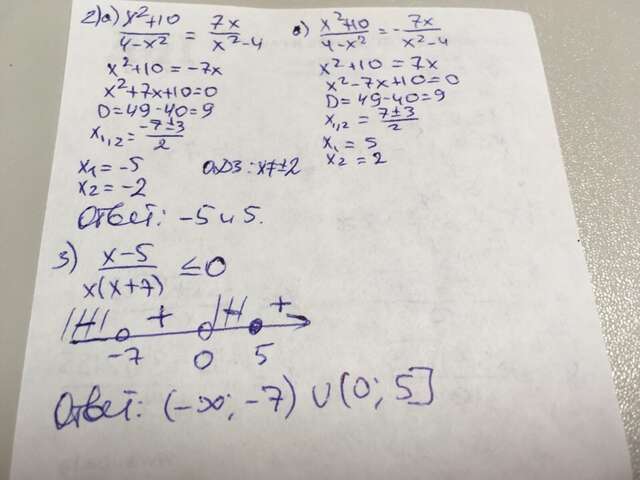 2) а) x²+10 / 4-x² = 7x / x²-4
x²+10 = -7x
x²+7x+10=0
D=49-40=9
x₁,₂ = -7±3 / 2
x₁ = -5
x₂ = -2
ОДЗ: x≠±2
в) x²+10 / 4-x² = - 7x / x²-4
x²+10 = 7x
x²-7x+10=0
D=49-40=9
x₁,₂ = 7±3 / 2
x₁ = 5
x₂ = 2
Ответ: -5 и 5.
3) x-5 / x(x+7) ≤ 0
+ +
-7 0 5
Ответ: (-∞; -7) ∪ (0; 5]